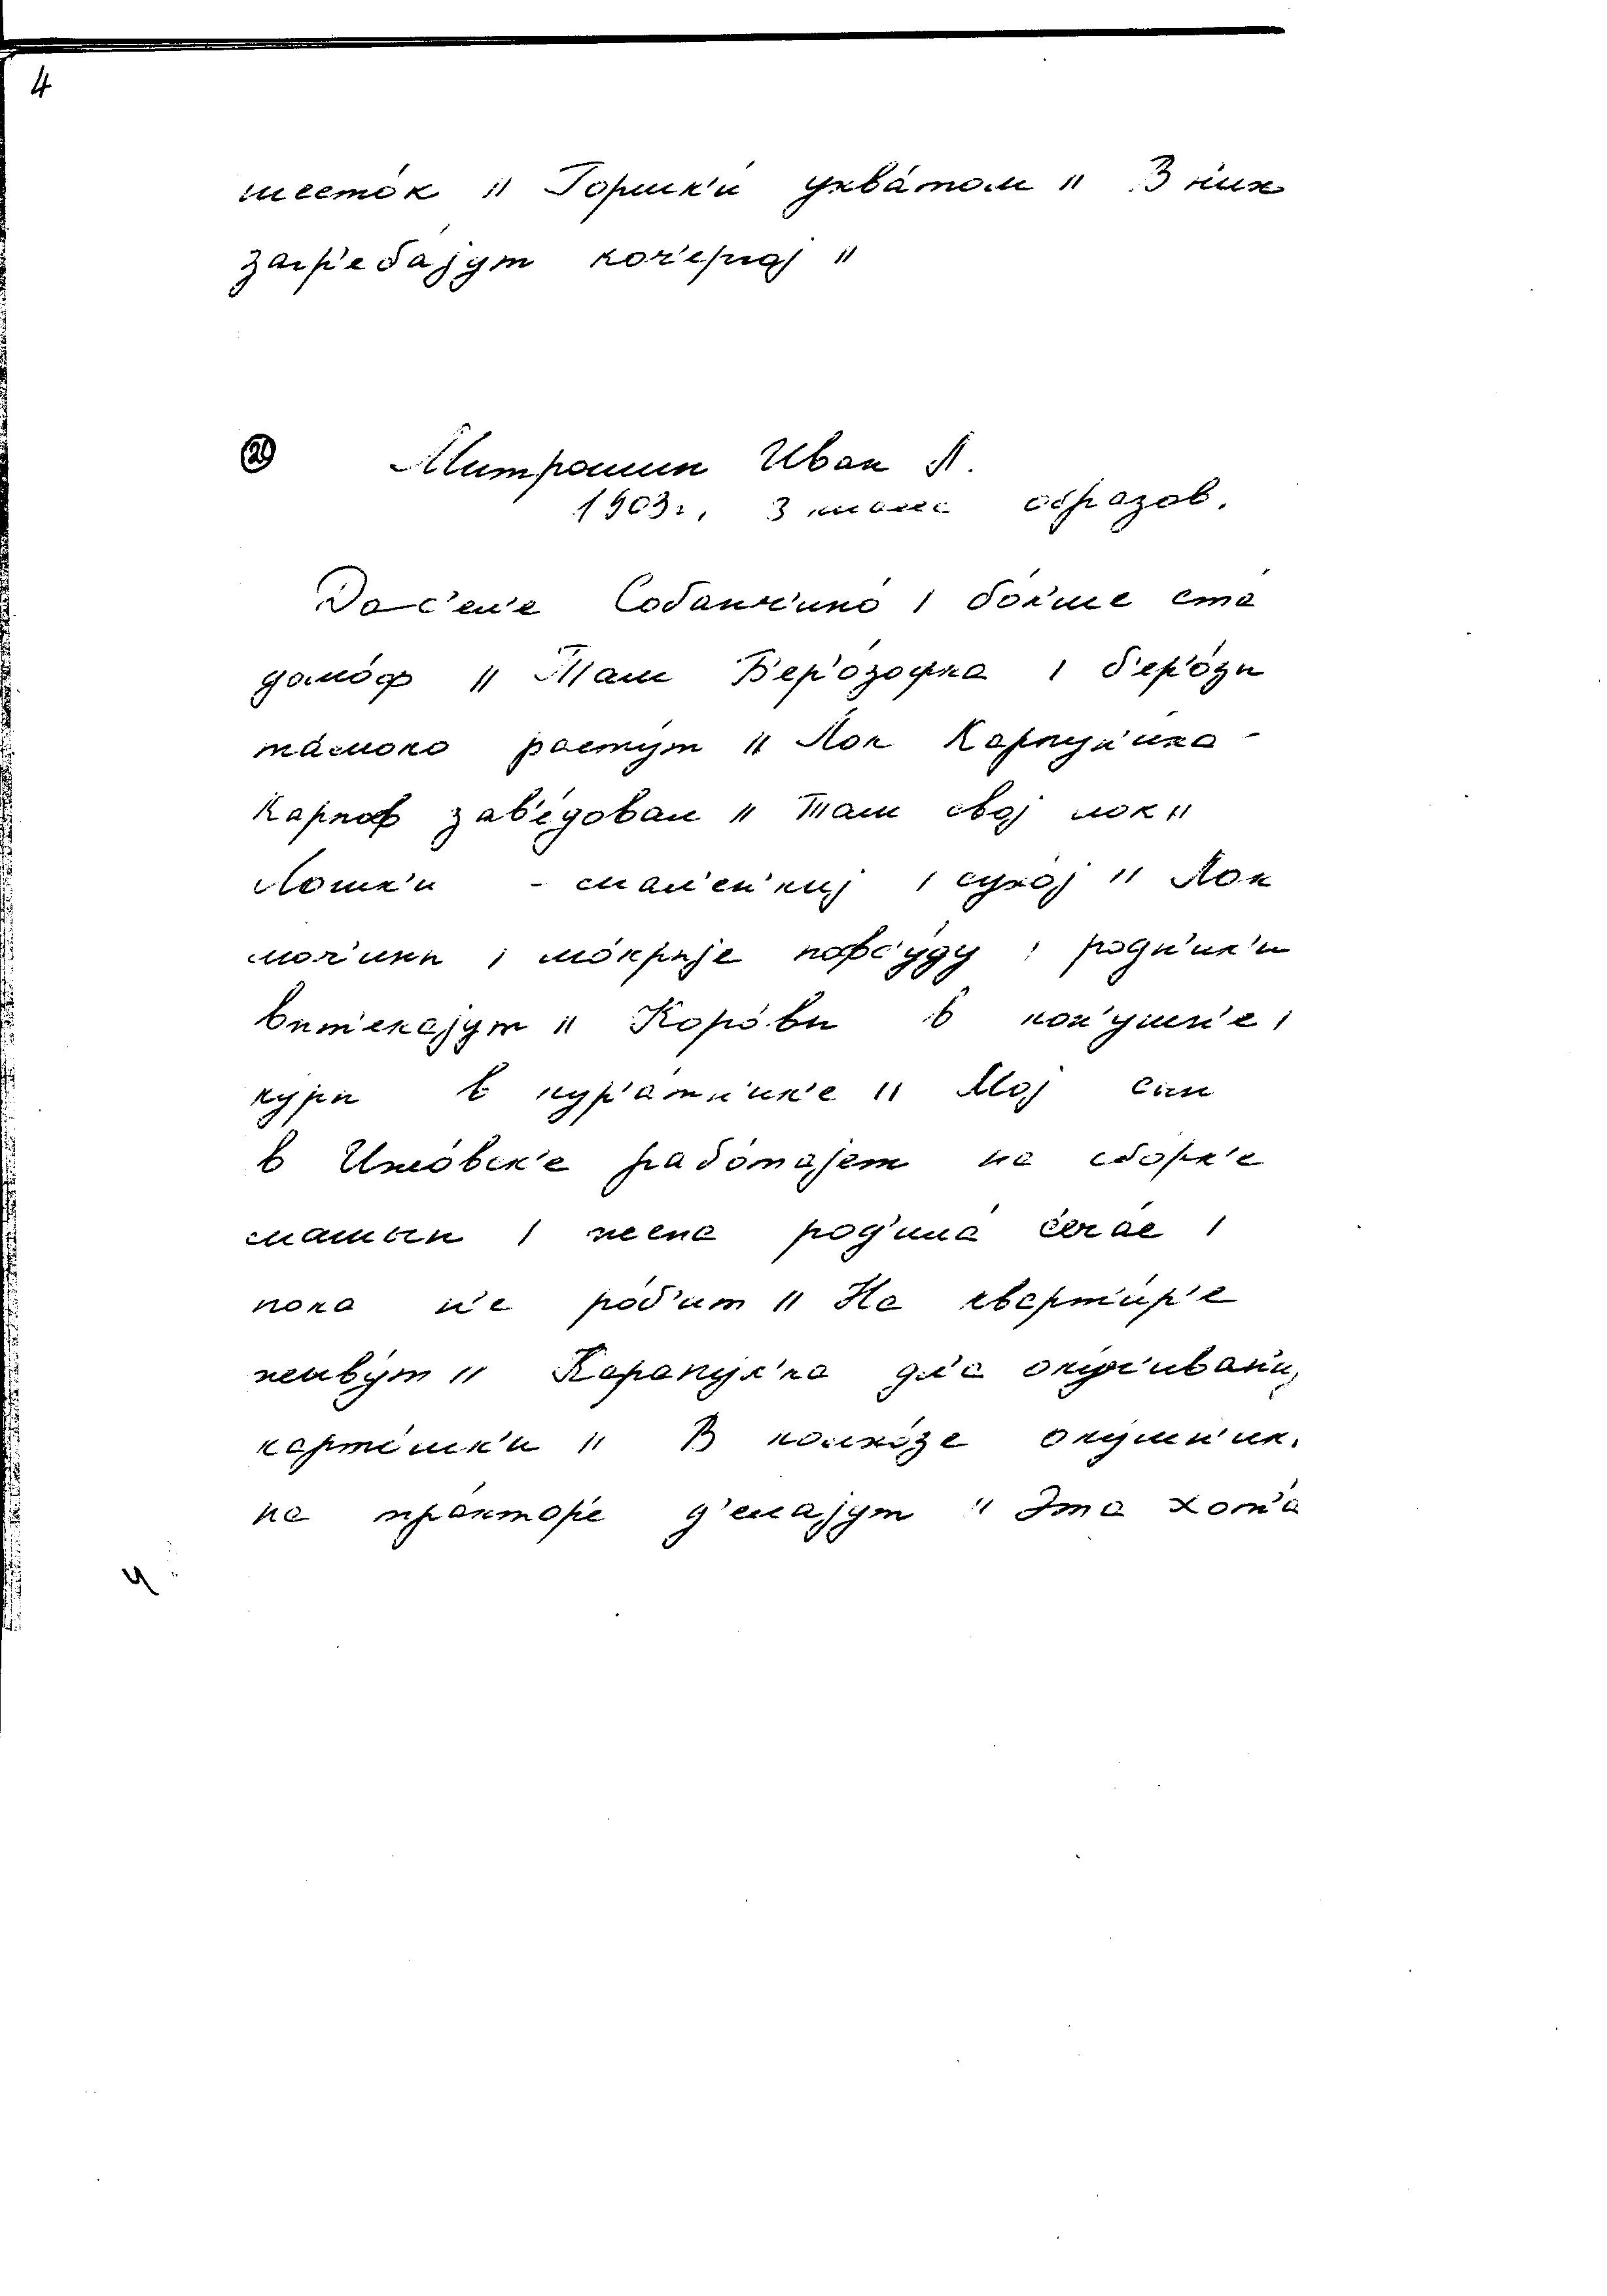 4
шесто́к // Горшк'и́ ухва́том // В них
загр'еба́јут коч'ергој //
29 Митрошин Иван А.
1903г., 3 класса образов.
До с'ел'е Собанч'ино́ / бо́л'ше ста
домо́ф // Там Б'ер'о́зофка / б'ер'о́зы
та́моко расту́т // Лок Карпу́х'ина -
Карпоф зав'е́довал // Там свој лок //
Лошк'и - мал'ен'киј / сухо́ј // Лок
моч'ины / мо́крыје пофс'у́ду / родн'ик'и
вытекајут // Коро́вы в кон'ушн'е /
куры в кур'а́тн'ик'е // Мој сын
в Ижо́вск'е рабо́тајет на сбо́рк'е
машын / жена род'ила́ сеча́с /
пока н'е ро́б'ит // На кварт'и́р'е
живу́т // Карапул'ка дл'а окуч'иван'иј
карто́шк'и // В колхо́зе оку́чн'ик.
на тра́ктор'е д'елајут // Эта хот'а
4